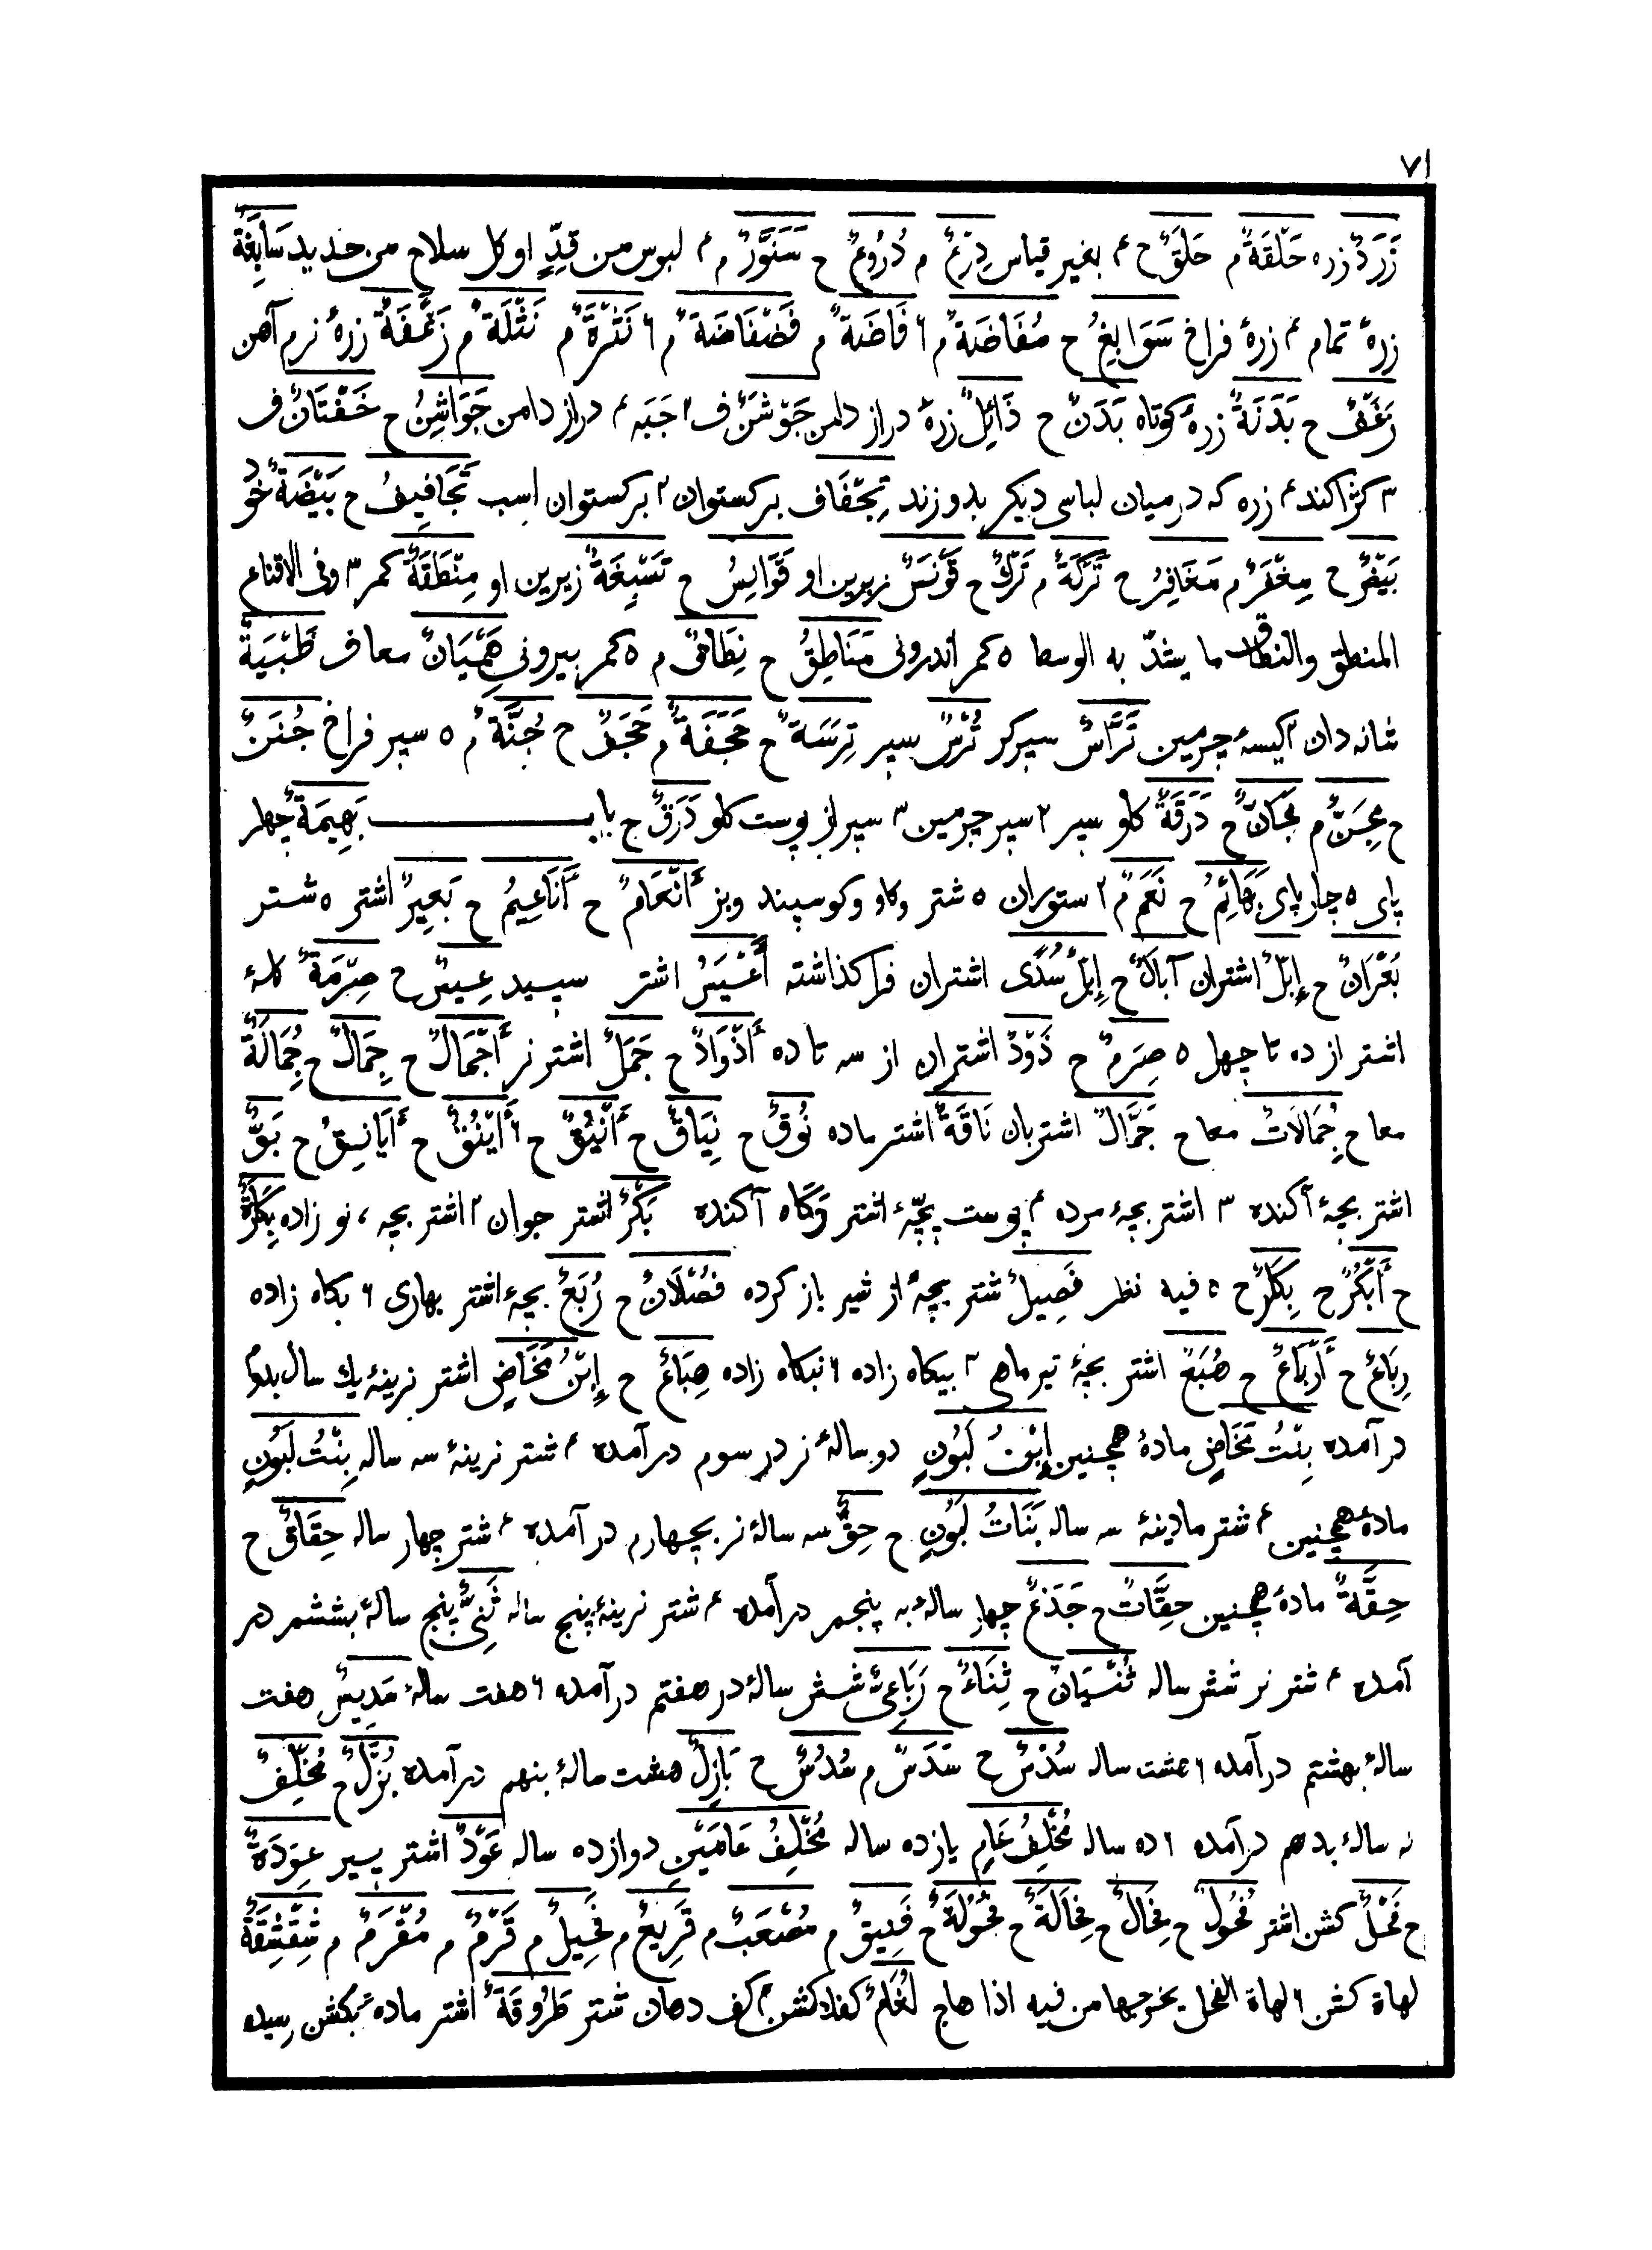 ٧١
زَرَدٌ زره حَلْقَةٌ م حَلَقٌ ح ۴ بغیر قیاس دِرْعٌ م دُرُوعٌ ح سَنَوَّرٌ م ۴ لبوس من قِدٍّ او کل سلاح من حدید سَابِغَةٌ
زرهٔ تمام ۴ زرهٔ فراخ سَوَابِغُ ح مُفَاضَةٌ م ۶ فَاضَةٌ م فَضْفَاضَةٌ م ۶ نَثْرَةٌ م نَثْلَةٌ م زَغْفَةٌ زرهٔ نرم آهن
زَغْفٌ ح بَدَنَةٌ زرهٔ کوتاه بَدَنٌ ح ذَائِلٌ زرهٔ دراز دامن جَوْشَنٌ ف ۲ جَبَه ۴ دراز دامن جَوَاشِنُ ح خَفْتَانٌ ف
۳ کژاکند ۴ زره که در میان لباسی دیکر بدوزند تِجْفَاف برکستوان ۲ برکستوان اسب تَجَافِیفُ ح بَیْضَةٌ خُود
بَیْضٌ ح مِغْفَرٌ م مَغَافِرُ ح تَرْکَةٌ م تَرْكٌ ح قَوْنَسٌ زبرین او قَوَانِسُ ح تَسْبِغَةٌ زیرین او مِنْطَقَةٌ کمر ۳ وفی الاقناع
المنطق والنطاق ما یشدّ به الوسط ٥ کمر اندرونی مَنَاطِقُ ح نِطَاقٌ م ٥ کمر بیرونی هِمْیَانٌ معاف ظَبْیَةٌ
شانه دان ۲ کیسهٔ چرمین تَرَّاسٌ سپرکر تُرْسٌ سپر تِرَسَةٌ ح حَجَفَةٌ م حَجَفٌ ح جُنَّةٌ م ٥ سپر فراخ جُنَنٌ
ح مِجَنٌّ م مَجَانٌّ ح دَرَقَةٌ کلو سپر ۲ سپر چرمین ۳ سپر از پوست کلو دَرَقٌ ح باب بَهِیمَةٌ چهار
پای ٥ چارپای بَهَائِمُ ح نَعَمٌ ۲ ستوران ٥ شتر و کاو و کوسپند و بز أَنْعَامٌ ح أَنَاعِیمُ ح بَعِیرٌ اشتر ٥ شتر
بُعْرَانٌ ح إِبِلٌ اشتران آبَالٌ ح إِبِلٌ سُدًی اشتران فرا کذاشته أَعْیَسُ اشتر سپید عِیسٌ ح صِرْمَةٌ کلهٔ
اشتر از ده تا چهل ٥ صِرَمٌ ح ذَوْدٌ اشتران از سه تا ده أَذْوَادٌ ح جَمَلٌ اشتر نر أَجْمَالٌ ح جِمَالٌ ح جُمَالَةٌ
معا ح جُِمَالَاتٌ معا ح جَمَّالٌ اشتربان نَاقَةٌ اشتر ماده نُوقٌ ح نِیَاقٌ ح أَنْیُقٌ ح ۶ أَیْنُقٌ ح أَیَانِقُ ح بَوٌّ
اشتر بچهٔ آکنده ۳ اشتر بچهٔ مرده ۴ پوست بچّهٔ اشتر و کاه آکنده بَکْرٌ اشتر جوان ۲ اشتر بچه، نو زاده بِکَارَةٌ
ح أَبْکُرٌ ح بِکَارٌ ح ٥ فیه نظر فَصِیلٌ شتر بچهٔ از شیر باز کرده فُصْلَانٌ ح رُبَعٌ بچهٔ اشتر بهاری ۶ بکاه زاده
رِبَاعٌ ح أَرْبَاعٌ ح هُبَعٌ اشتر بچهٔ تیر ماهی ۲ بیکاه زاده ۶ نبکاه زاده هِبَاعٌ ح إِبْنُ مَخَاضٍ اشتر نرینهٔ یك سال بدوم
در آمده بِنْتُ مَخَاضٍ مادهٔ همچنین إِبْنُ لَبُونٍ دو سالهٔ نر در سوم درآمده ۴ شتر نرینهٔ سه ساله بِنْتُ لَبُونٍ
مادهٔ همچنین ۴ شتر مادینهٔ سه ساله بَنَاتُ لَبُونٍ ح حِقٌّ سه سالهٔ نر بچهارم در آمده ۴ شتر چهار ساله حِقَاقٌ ح
حِقَّةٌ مادهٔ همچنین حِقَّاتٌ ح جَذَعٌ چهار سالهٔ به پنجم درآمده ۴ شتر نرینهٔ پنج ساله ثَنِیٌّ پنج سالهٔ بششم در
آمده ۴ شتر نر شش ساله ثُنْیَانٌ ح ثِنَاءٌ ح رَبَاعِیٌّ شش سالهٔ در هفتم درآمده ۶ هفت سالهٔ سَدِیسٌ هفت
سالهٔ بهشتم درآمده ۶ هشت ساله سُدْسٌ ح سَدَسٌ م سُدُسٌ ح بَازِلٌ هشت سالهٔ بنهم درآمده بُزَّلٌ ح مُخْلِفٌ
نه سالهٔ بدهم درآمده ۶ ده ساله مُخْلِفُ عَامٍ یازده ساله مُخْلِفُ عَامَیْنِ دوازده ساله عَوْدٌ اشتر پیر عِوَدَةٌ
ح فَحْلٌ کشن اشتر فُحُولٌ ح فِحَالٌ ح فِحَالَةٌ ح فُحُولَةٌ ح فَنِیقٌ م مُصْعَبٌ م قَرِیعٌ م فَحِیلٌ م قَرْمٌ م مُقْرَمٌ م شِقْشِقَةٌ
لهاة کشن ۶ لهاة الفحل یخرجها من فیه اذا هاج لُغَامٌ کف کشن ۴ کف دهان شتر طَرُوقَةٌ اشتر مادهٔ بکشن رسیده